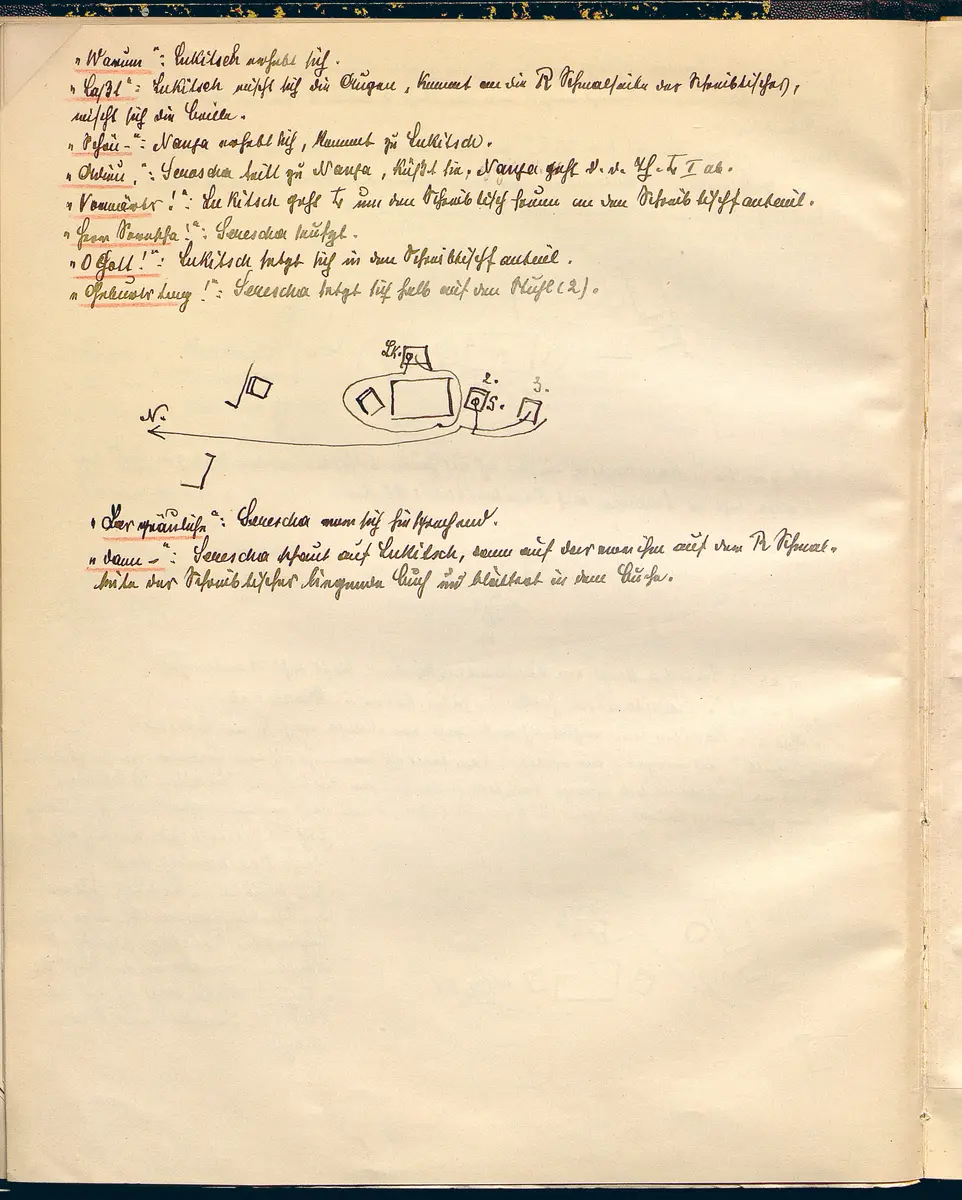 „Warum“: Lukitsch erhebt sich.
„Laßt“: Lukitsch wischt sich die Augen, kommt an die R Schmalseite des Schreibtisches,
wischt sich die Brille.
„Schön–“: Nanja erhebt sich, kommt zu Lukitsch.
„Adieu,“: Serescha tritt zu Nanja, küßt sie, Nanja geht d. d. Th. L I ab.
„Vorwärts!“: Lukitsch geht L um den Schreibtisch herum an den Schreibtischfauteuil.
„Herr“: Serescha seufzt.
„O Gott!“: Lukitsch setzt sich in den Schreibtischfauteuil.
„Geburtstag!“: Serescha setzt sich halb auf den Stuhl (2).
Lk.
2.
3.
S.
N.
„Der“: Serescha vor sich hinsprechend.
„dann –“: Serescha schaut auf Lukitsch, dann auf das vor ihm auf der R Schmal-
seite des Schreibtisches liegende Buch und blättert in dem Buche.